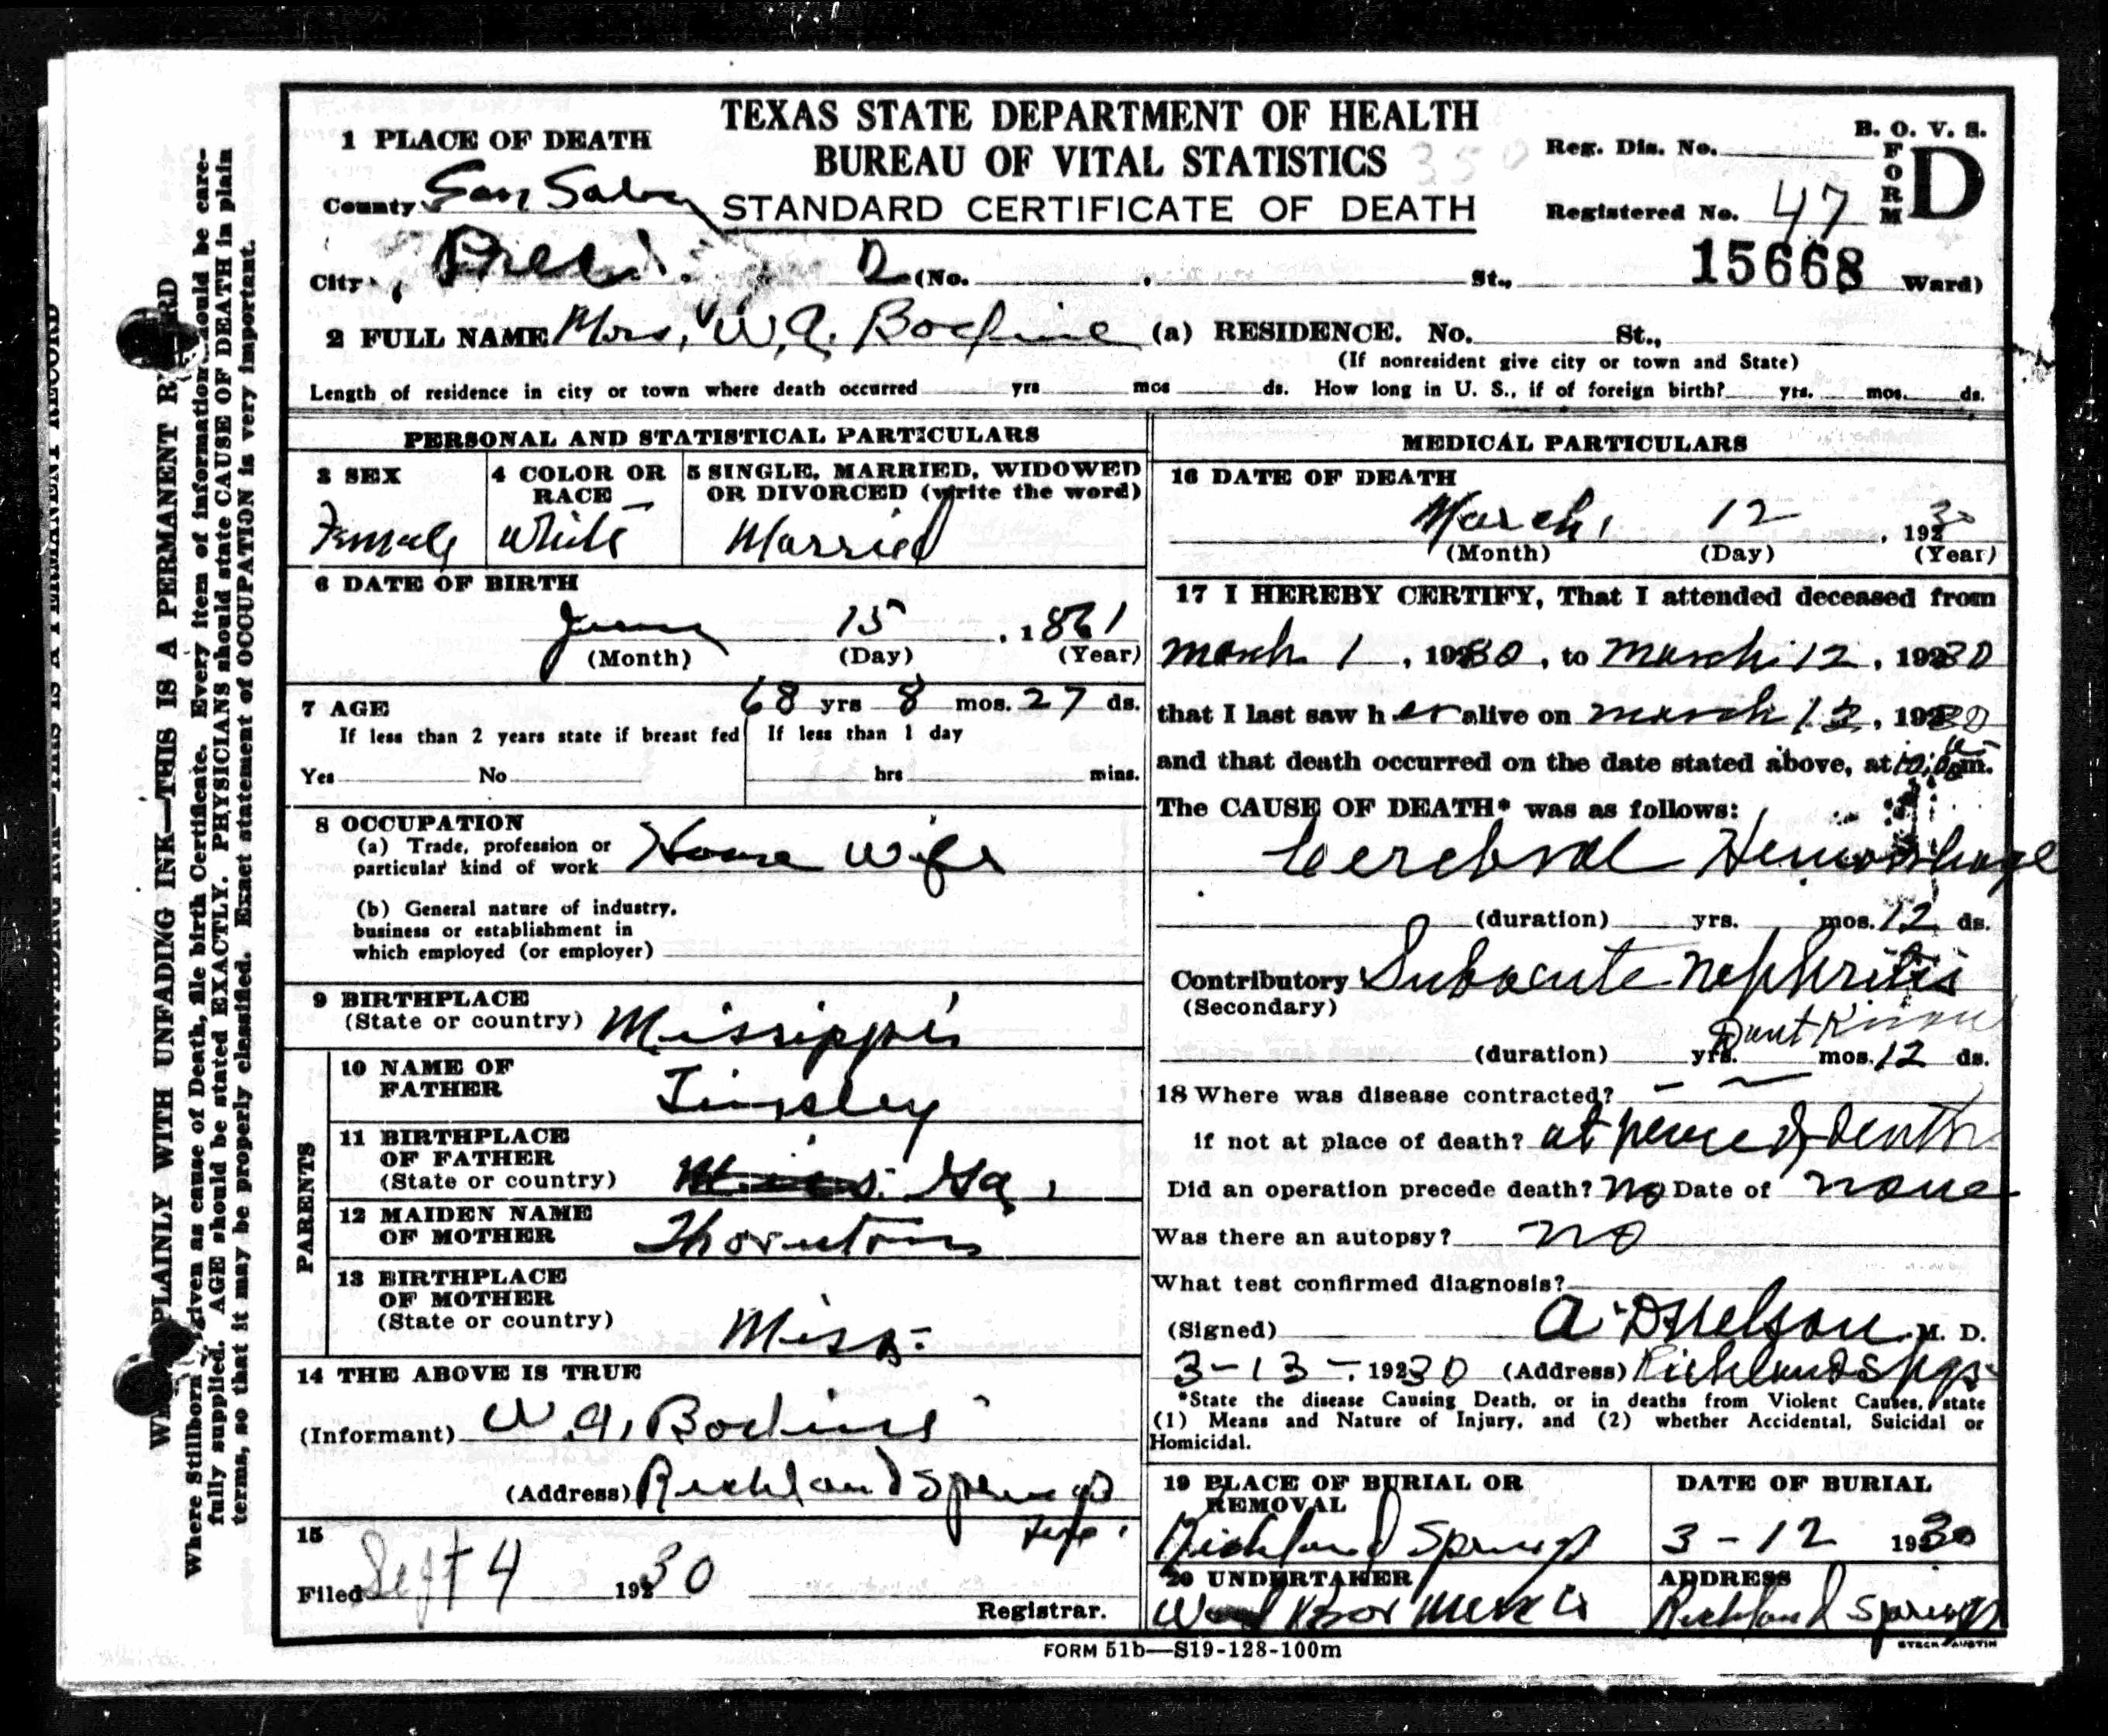 TEXAS STATE DEPARTMENT OF HEALTH
BUREAU OF VITAL STATISTICS
STANDARD CERTIFICATE OF DEATH
350
B. O. V. S.
FORM D
Reg. Dis. No.
Registered No. 47
15668
1 PLACE OF DEATH
County San Saba
City (No. St., Ward)
2 FULL NAME Mrs, W,A. Bodine (a) RESIDENCE. No. St.,
(If nonresident give city or town and State)
Length of residence in city or town where death occurred yrs mos ds. How long in U. S., if of foreign birth? yrs. mos. ds.
PERSONAL AND STATISTICAL PARTICULARS
3 SEX
Female
4 COLOR OR RACE
White
5 SINGLE, MARRIED, WIDOWED
OR DIVORCED (write the word)
Married
6 DATE OF BIRTH
June 15, 1861
(Month) (Day) (Year)
7 AGE 68 yrs 8 mos. 27 ds.
If less than 2 years state if breast fed
Yes No
If less than 1 day
hrs mins.
8 OCCUPATION
(a) Trade, profession or
particular kind of work House Wife
(b) General nature of industry,
business or establishment in
which employed (or employer)
9 BIRTHPLACE
(State or country) Missippi
PARENTS
10 NAME OF
FATHER Tinsley
11 BIRTHPLACE
OF FATHER
(State or country) Miss. Ga,
12 MAIDEN NAME
OF MOTHER Thornton
13 BIRTHPLACE
OF MOTHER
(State or country) Miss.
14 THE ABOVE IS TRUE
(Informant) W.A, Bodine
(Address) Richland Springs
Tex.
15
Filed Sept 4 19230
Registrar.
MEDICAL PARTICULARS
16 DATE OF DEATH
March, 12, 19230
(Month) (Day) (Year)
17 I HEREBY CERTIFY, That I attended deceased from
March 1, 19230, to March 12, 19230
that I last saw her alive on March 12, 19230
and that death occurred on the date stated above, at m.
The CAUSE OF DEATH* was as follows:
Cerebral Hemorrhage
(duration) yrs. mos. 12 ds.
Contributory Subacute nephritis
(Secondary)
Dont Know
(duration) yrs. mos. 12 ds.
18 Where was disease contracted?
if not at place of death? at place of death
Did an operation precede death? No Date of none
Was there an autopsy? no
What test confirmed diagnosis?
(Signed) A. D. Nelson M. D.
3-13-, 19230 (Address) Richland Spgs
*State the disease Causing Death, or in deaths from Violent Causes, state
(1) Means and Nature of Injury, and (2) whether Accidental, Suicidal or
Homicidal.
19 PLACE OF BURIAL OR
REMOVAL
Richland Springs
DATE OF BURIAL
3-12 19230
20 UNDERTAKER
ADDRESS
Richland Springs
FORM 51b—S19-128-100m
STECK-AUSTIN
PLAINLY WITH UNFADING INK—THIS IS A PERMANENT RECORD
Where Stillborn given as cause of Death, file birth Certificate. Every item of information should be care-
fully supplied. AGE should be stated EXACTLY. PHYSICIANS should state CAUSE OF DEATH in plain
terms, so that it may be properly classified. Exact statement of OCCUPATION is very important.